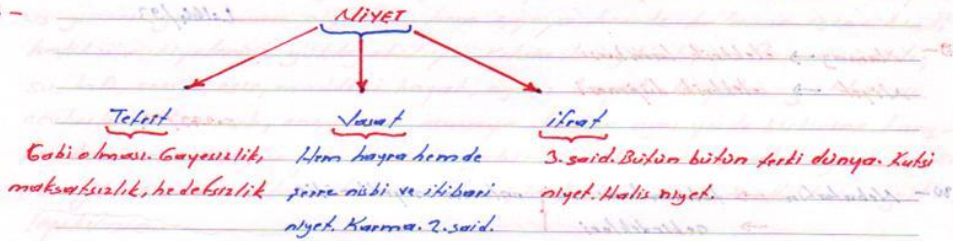 NİYET
Tefrit
Gabi olması. Gayesizlik,
maksatsızlık, hedefsizlik
Vasat
Hem hayra hem de
şerre nisbi ve itibari
niyet. Karma. 2. said.
ifrat
3. said. Bütün bütün terki dünya. Kutsi
niyet. Halis niyet.